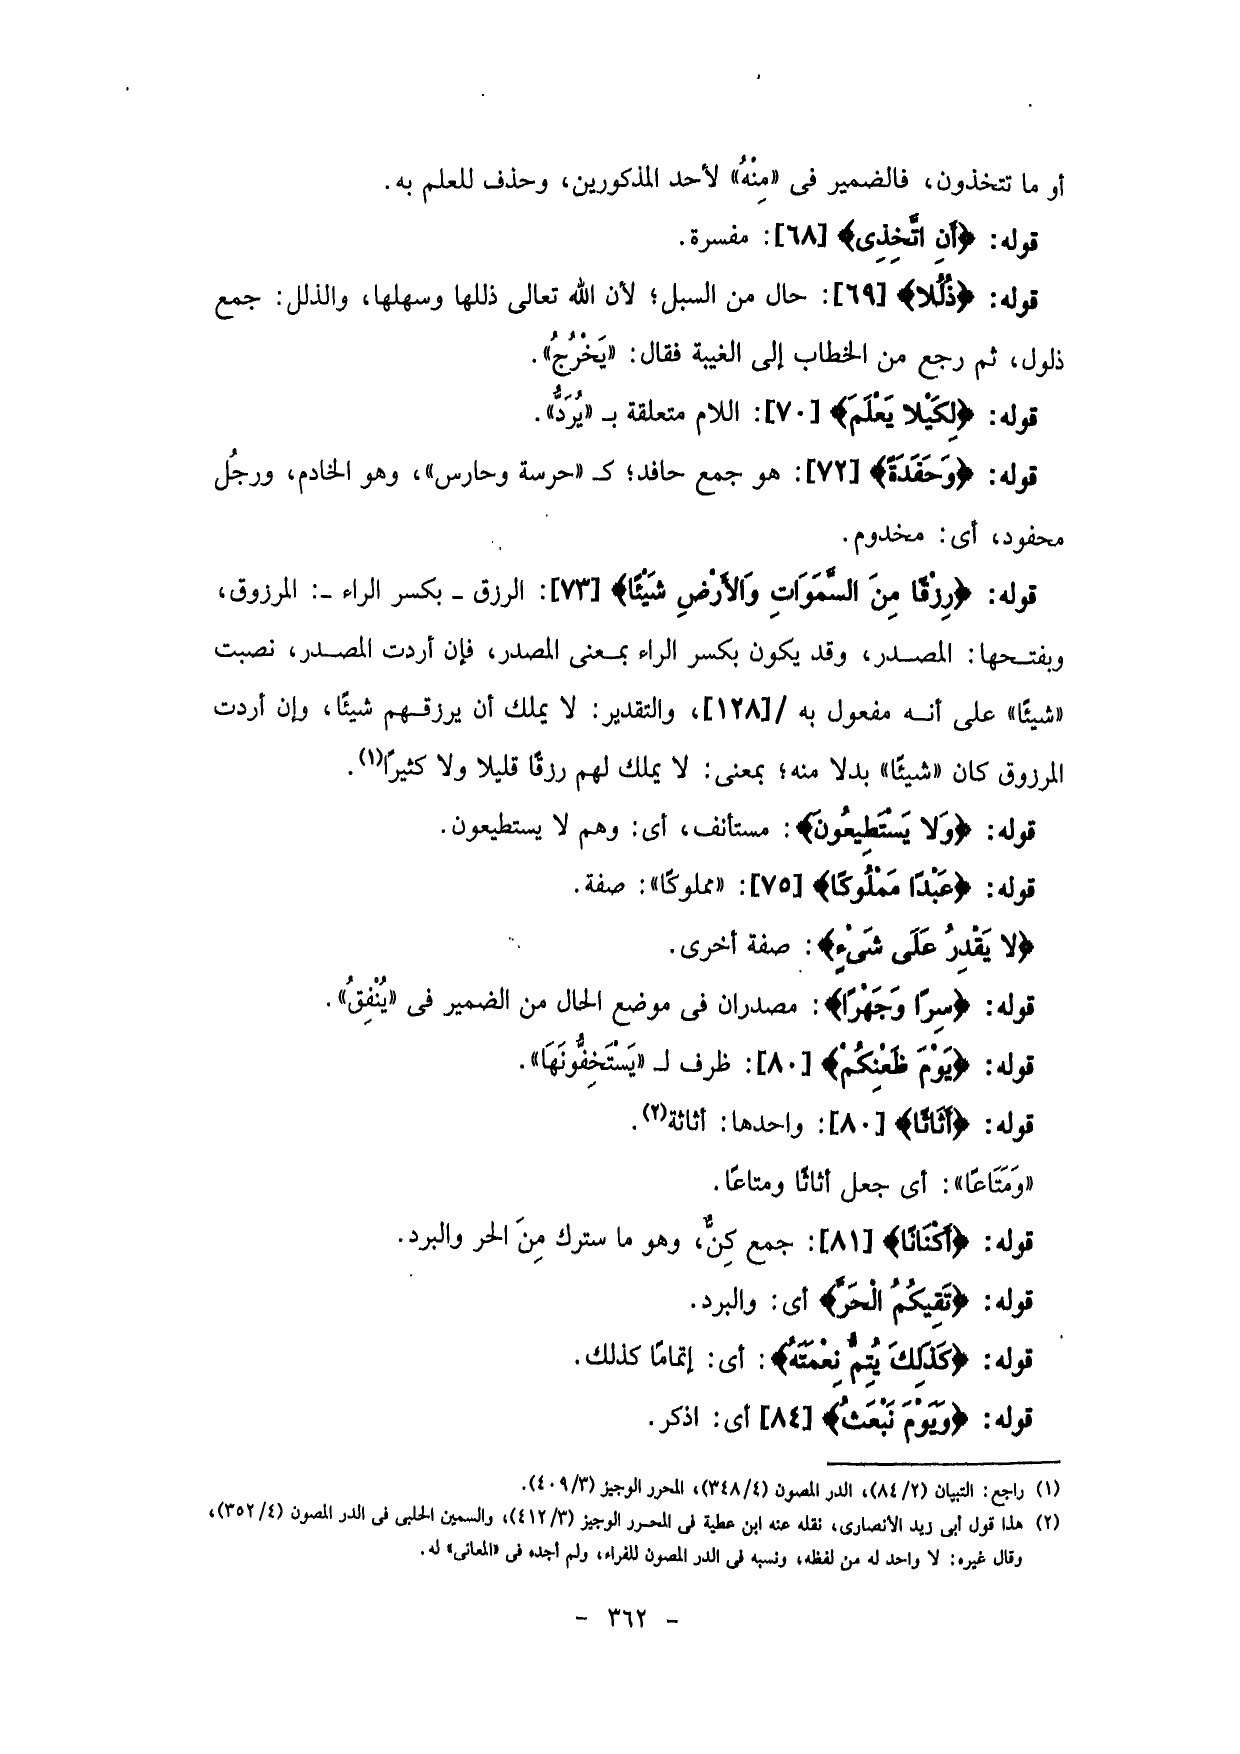 أو ما تتخذون، فالضمير فى «مِنْهُ» لأحد المذكورين، وحذف للعلم به.
قوله: ﴿أَنِ اتَّخِذِى﴾ [٦٨]: مفسرة.
قوله: ﴿ذُلُلًا﴾ [٦٩]: حال من السبل؛ لأن الله تعالى ذللها وسهلها، والذلل: جمع
ذلول، ثم رجع من الخطاب إلى الغيبة فقال: «يَخْرُجُ».
قوله: ﴿لِكَيْلا يَعْلَمَ﴾ [٧٠]: اللام متعلقة بـ «يُرَدُّ».
قوله: ﴿وَحَفَدَةً﴾ [٧٢]: هو جمع حافد؛ كـ «حرسة وحارس»، وهو الخادم، ورجُل
محفود، أى: مخدوم.
قوله: ﴿رِزْقًا مِنَ السَّمَوَاتِ وَالأَرْضِ شَيْئًا﴾ [٧٣]: الرزق ـ بكسر الراء ـ: المرزوق،
وبفتحها: المصدر، وقد يكون بكسر الراء بمعنى المصدر، فإن أردت المصدر، نصبت
«شيئًا» على أنه مفعول به /[١٢٨]، والتقدير: لا يملك أن يرزقهم شيئًا، وإن أردت
المرزوق كان «شيئًا» بدلا منه؛ بمعنى: لا يملك لهم رزقًا قليلا ولا كثيرًا(١).
قوله: ﴿وَلا يَسْتَطِيعُونَ﴾: مستأنف، أى: وهم لا يستطيعون.
قوله: ﴿عَبْدًا مَمْلُوكًا﴾ [٧٥]: «مملوكًا»: صفة.
﴿لا يَقْدِرُ عَلَى شَىْءٍ﴾: صفة أخرى.
قوله: ﴿سِرًا وَجَهْرًا﴾: مصدران فى موضع الحال من الضمير فى «يُنْفِقُ».
قوله: ﴿يَوْمَ ظَعْنِكُمْ﴾ [٨٠]: ظرف لـ «يَسْتَخِفُّونَهَا».
قوله: ﴿أَثَاثًا﴾ [٨٠]: واحدها: أثاثة(٢).
«وَمَتَاعًا»: أى جعل أثاثًا ومتاعًا.
قوله: ﴿أَكْنَانًا﴾ [٨١]: جمع كِنٌّ، وهو ما سترك مِنَ الحر والبرد.
قوله: ﴿تَقِيكُمُ الْحَرَّ﴾ أى: والبرد.
قوله: ﴿كَذَلِكَ يُتِمُّ نِعْمَتَهُ﴾: أى: إتمامًا كذلك.
قوله: ﴿وَيَوْمَ نَبْعَثُ﴾ [٨٤] أى: اذكر.
(١) راجع: التبيان (٨٤/٢)، الدر المصون (٣٤٨/٤)، المحرر الوجيز (٤٠٩/٣).
(٢) هذا قول أبى زيد الأنصارى، نقله عنه ابن عطية فى المحرر الوجيز (٤١٢/٣)، والسمين الحلبى فى الدر المصون (٣٥٢/٤)،
وقال غيره: لا واحد له من لفظه، ونسبه فى الدر المصون للفراء، ولم أجده فى «المعانى» له.
- ٣٦٢ -